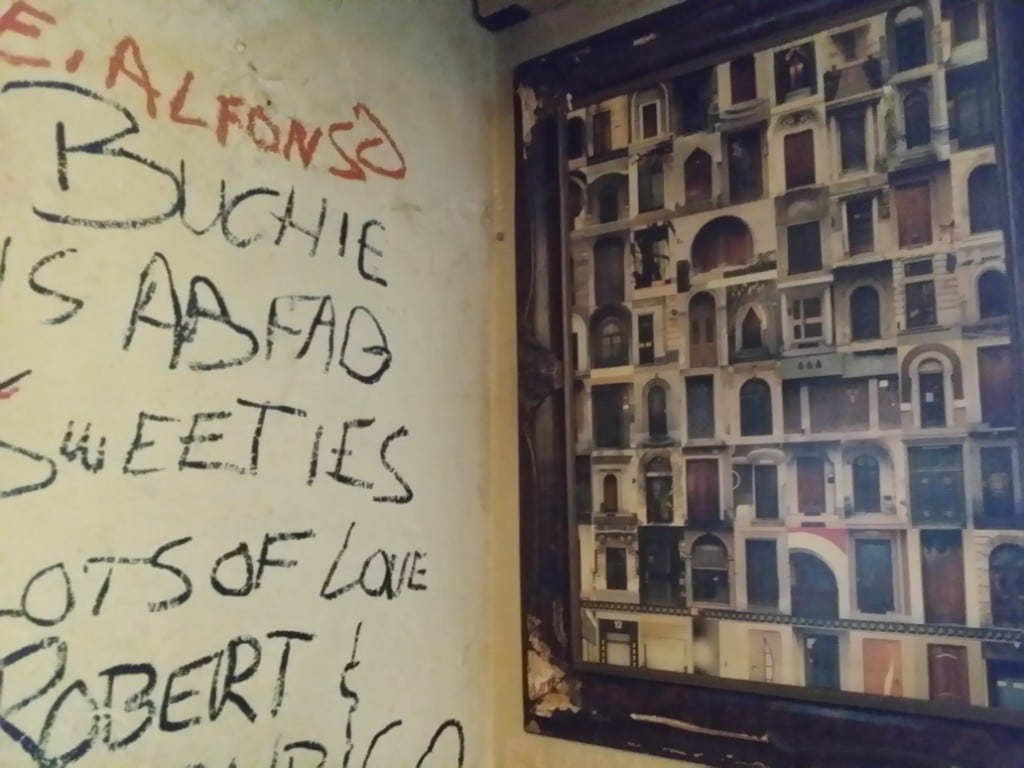 E, ALFONSO
BUCHIE
IS ABFAB
SWEETIES
LOTS OF LOVE
ROBERT &